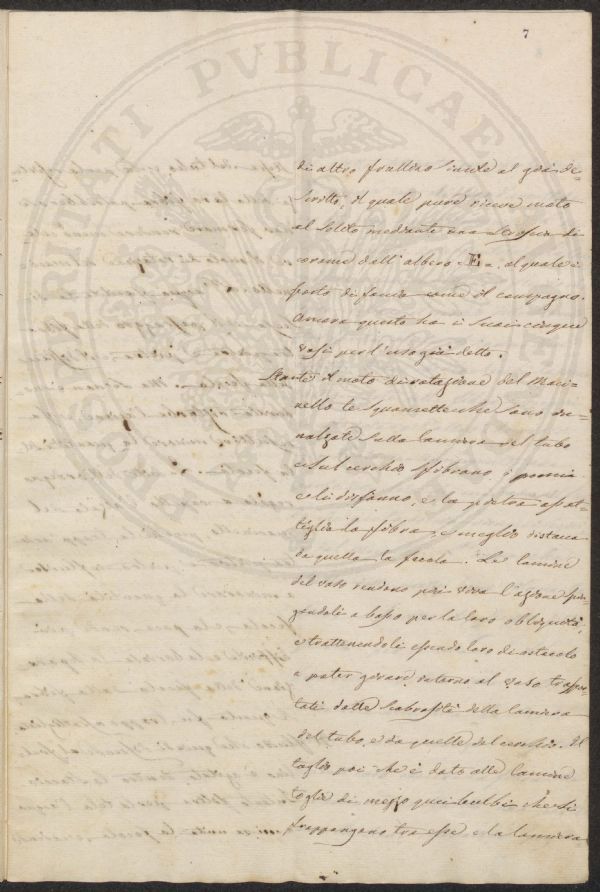 7
di altro frullino simile al già de=
scritto, il quale pure riceve moto
al solito mediante una
comune dell'albero = E = al quale è
posto di fianco come il compagno.
Ancora questo ha i suoi cinque
vasi per l'uso già detto.
Stante il moto di rotazione del Maci=
nello le squamette che sono in=
nalzate sulla lamiera del tubo
e sul cerchio sfibrano i pomi
e li disfanno, e la pietra assot=
tiglia la fibra, e meglio distacca
da quella la fecola. Le lamine
del vaso rendono più viva l'azione spin
gendoli a basso per la loro obliquità,
e trattenendoli essendo loro di ostacolo
a poter girare intorno al vaso traspor
tati dalle scabrosità della lamiera
del tubo, e da quelle del cerchio. Il
taglio poi che è dato alle lamine
toglie di mezzo quei bulbi che si
frappongano tra esse e la lamiera
PVBLICAE